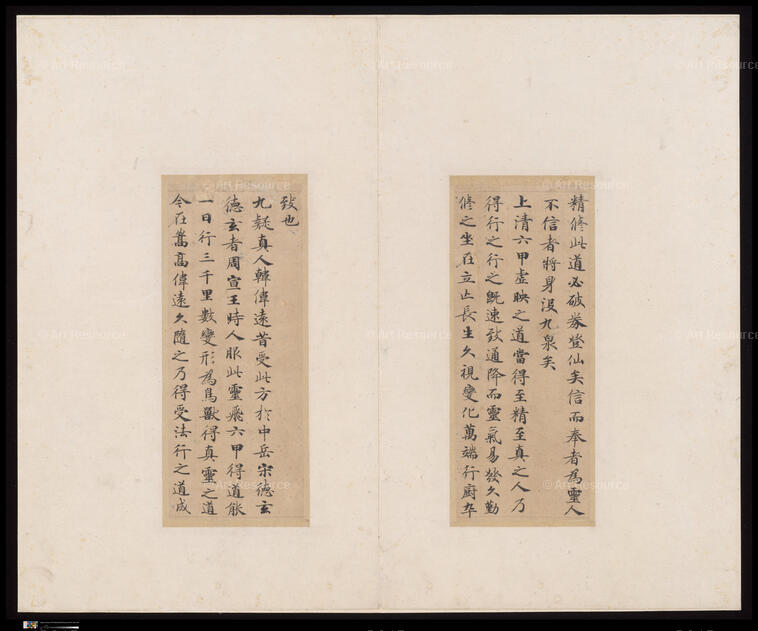 © Art Resource
© Art Resource
© Art Resource
© Art Resource
© Art Resource
精修此道必破券登仙矣信而奉者為靈人
不信者將身沒九泉矣
上清六甲虛映之道當得至精至真之人乃
得行之行之既速致通降而靈氣易發久勤
修之坐在立亡長生久視變化萬端行廚卒
致也
九疑真人韓偉遠昔受此方於中岳宋德玄
德玄者周宣王時人服此靈飛六甲得道能
一日行三千里數變形為鳥獸得真靈之道
今在嵩高偉遠久隨之乃得受法行之道成
© Art Resource
© Art Resource
© Art Resource
© Art Resource
© Art Resource